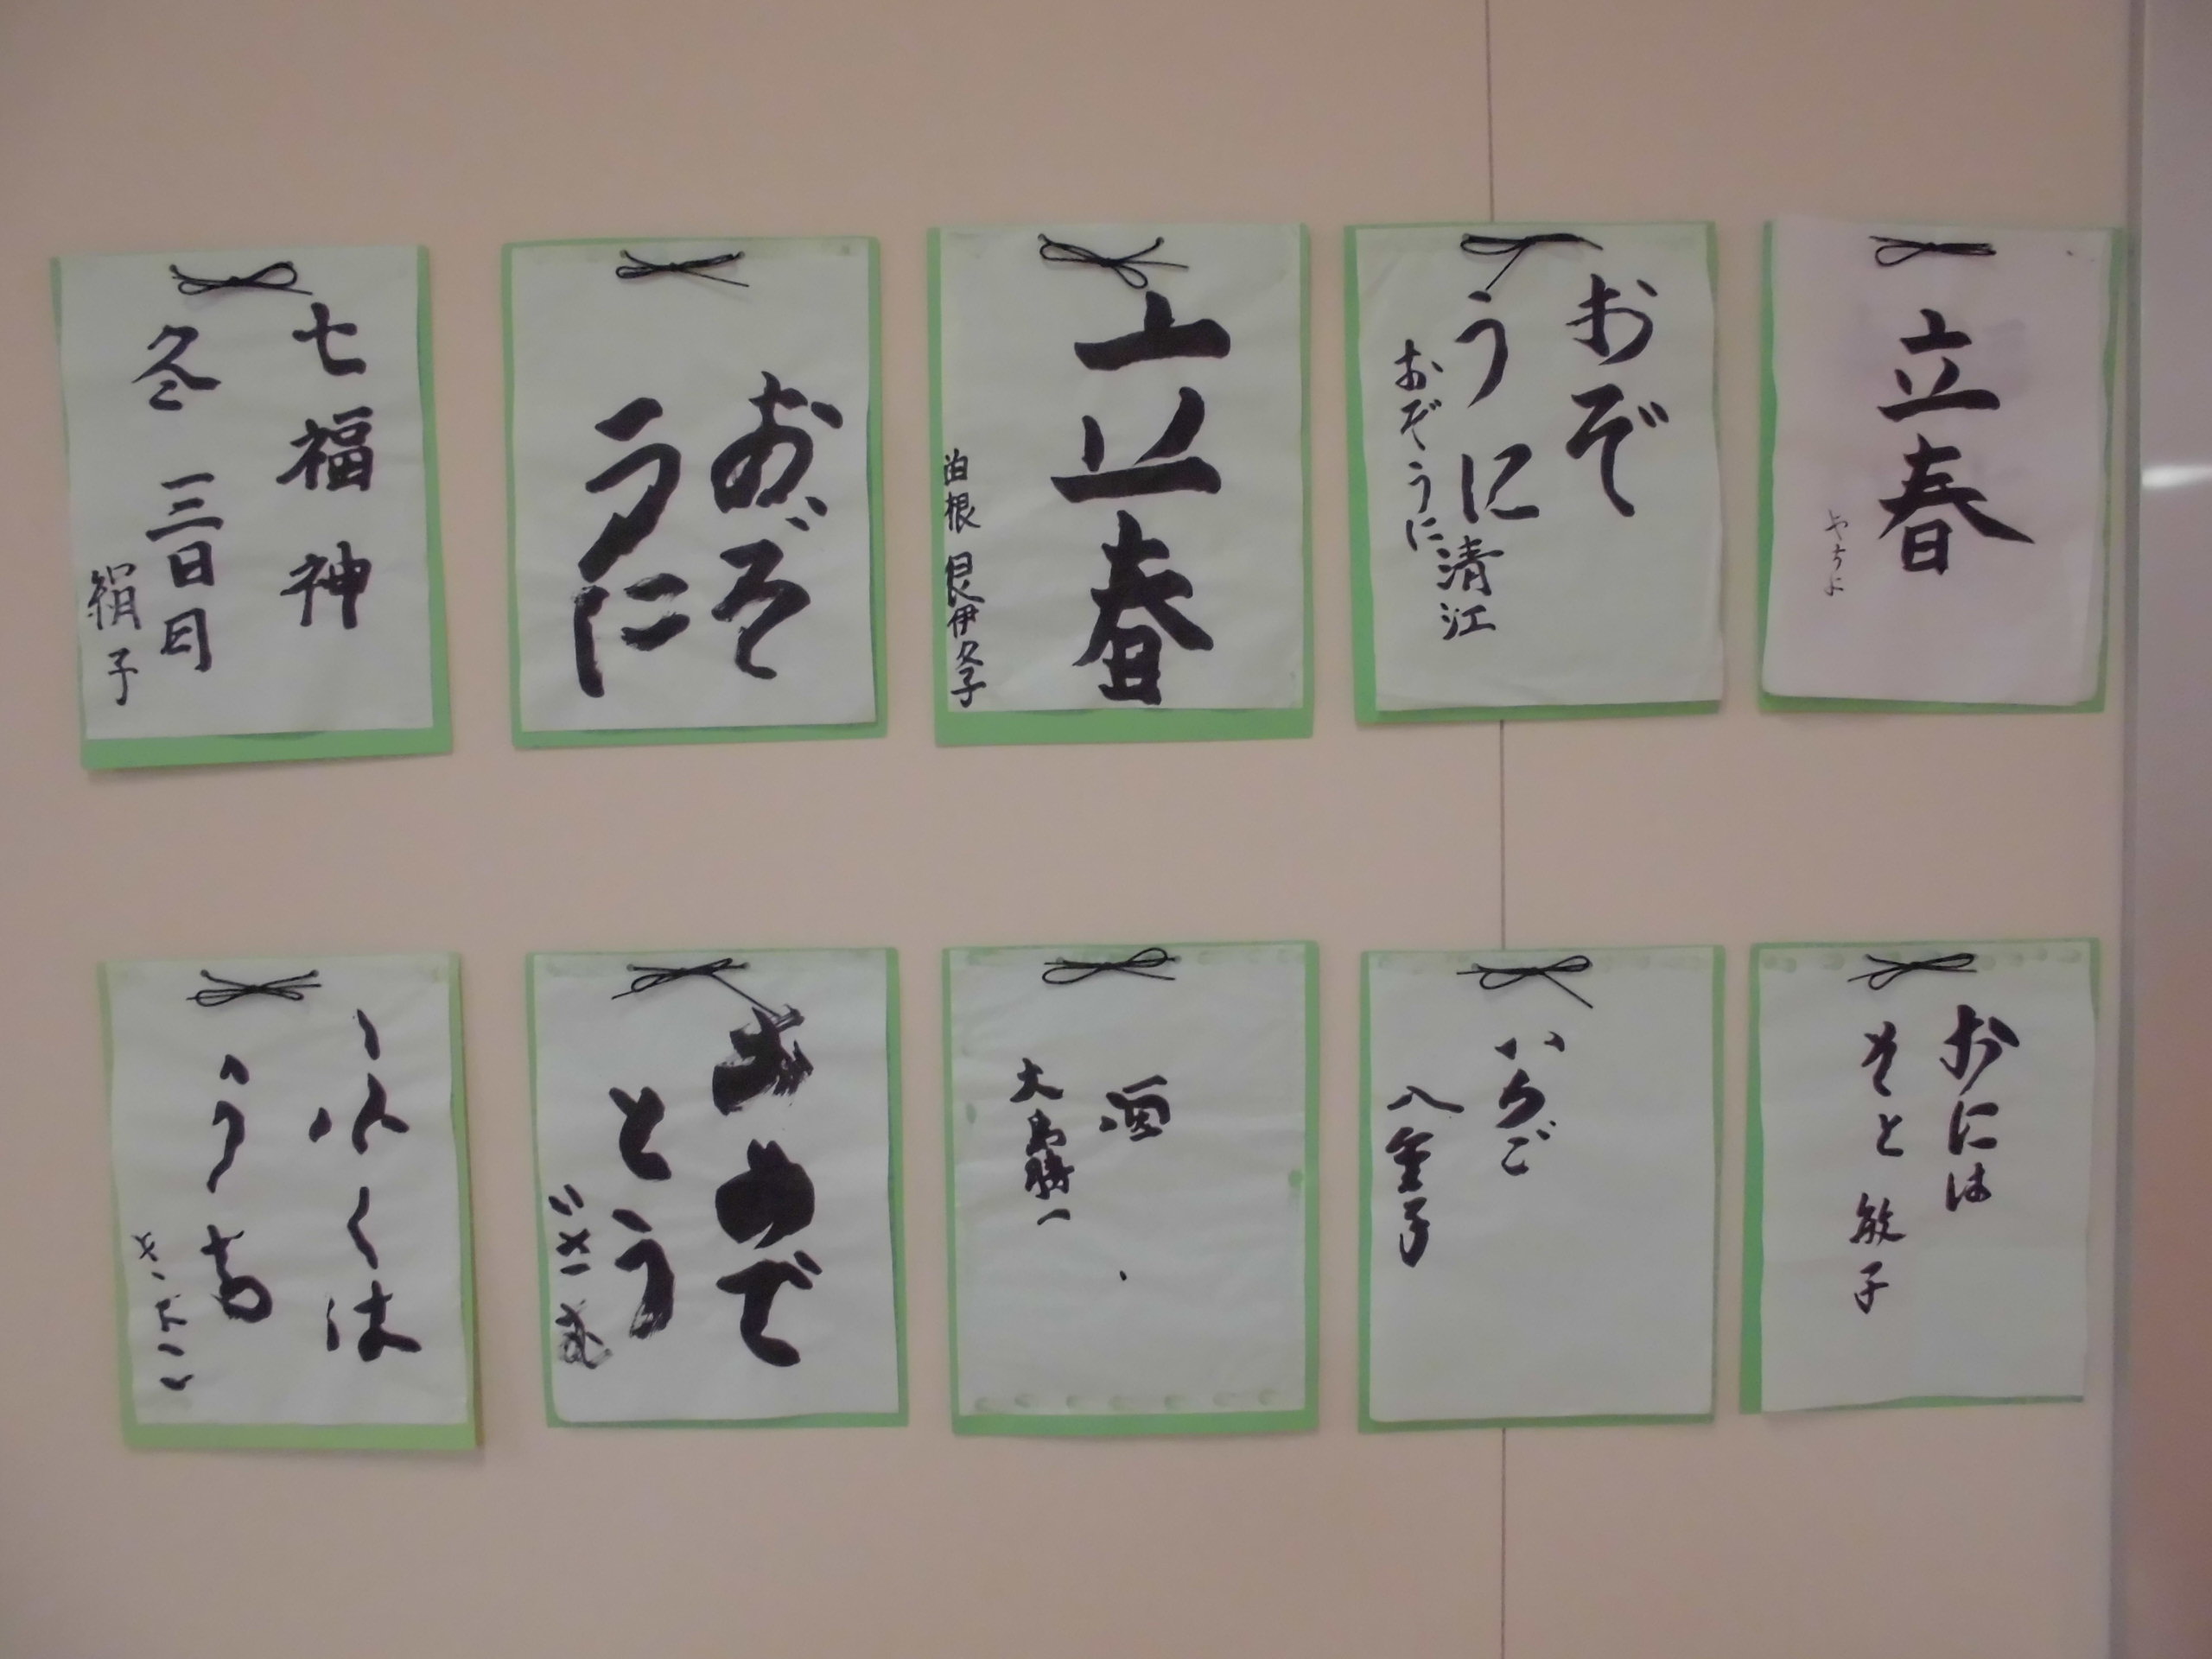 立春
やちよ
おぞ
うに
おぞうに
清江
立春
おぞ
うに
七福神
冬 三日目
絹子
おには
そと
敏子
いちご
八重子
酒
大島勝一
おめで
とう
ふくは
うち